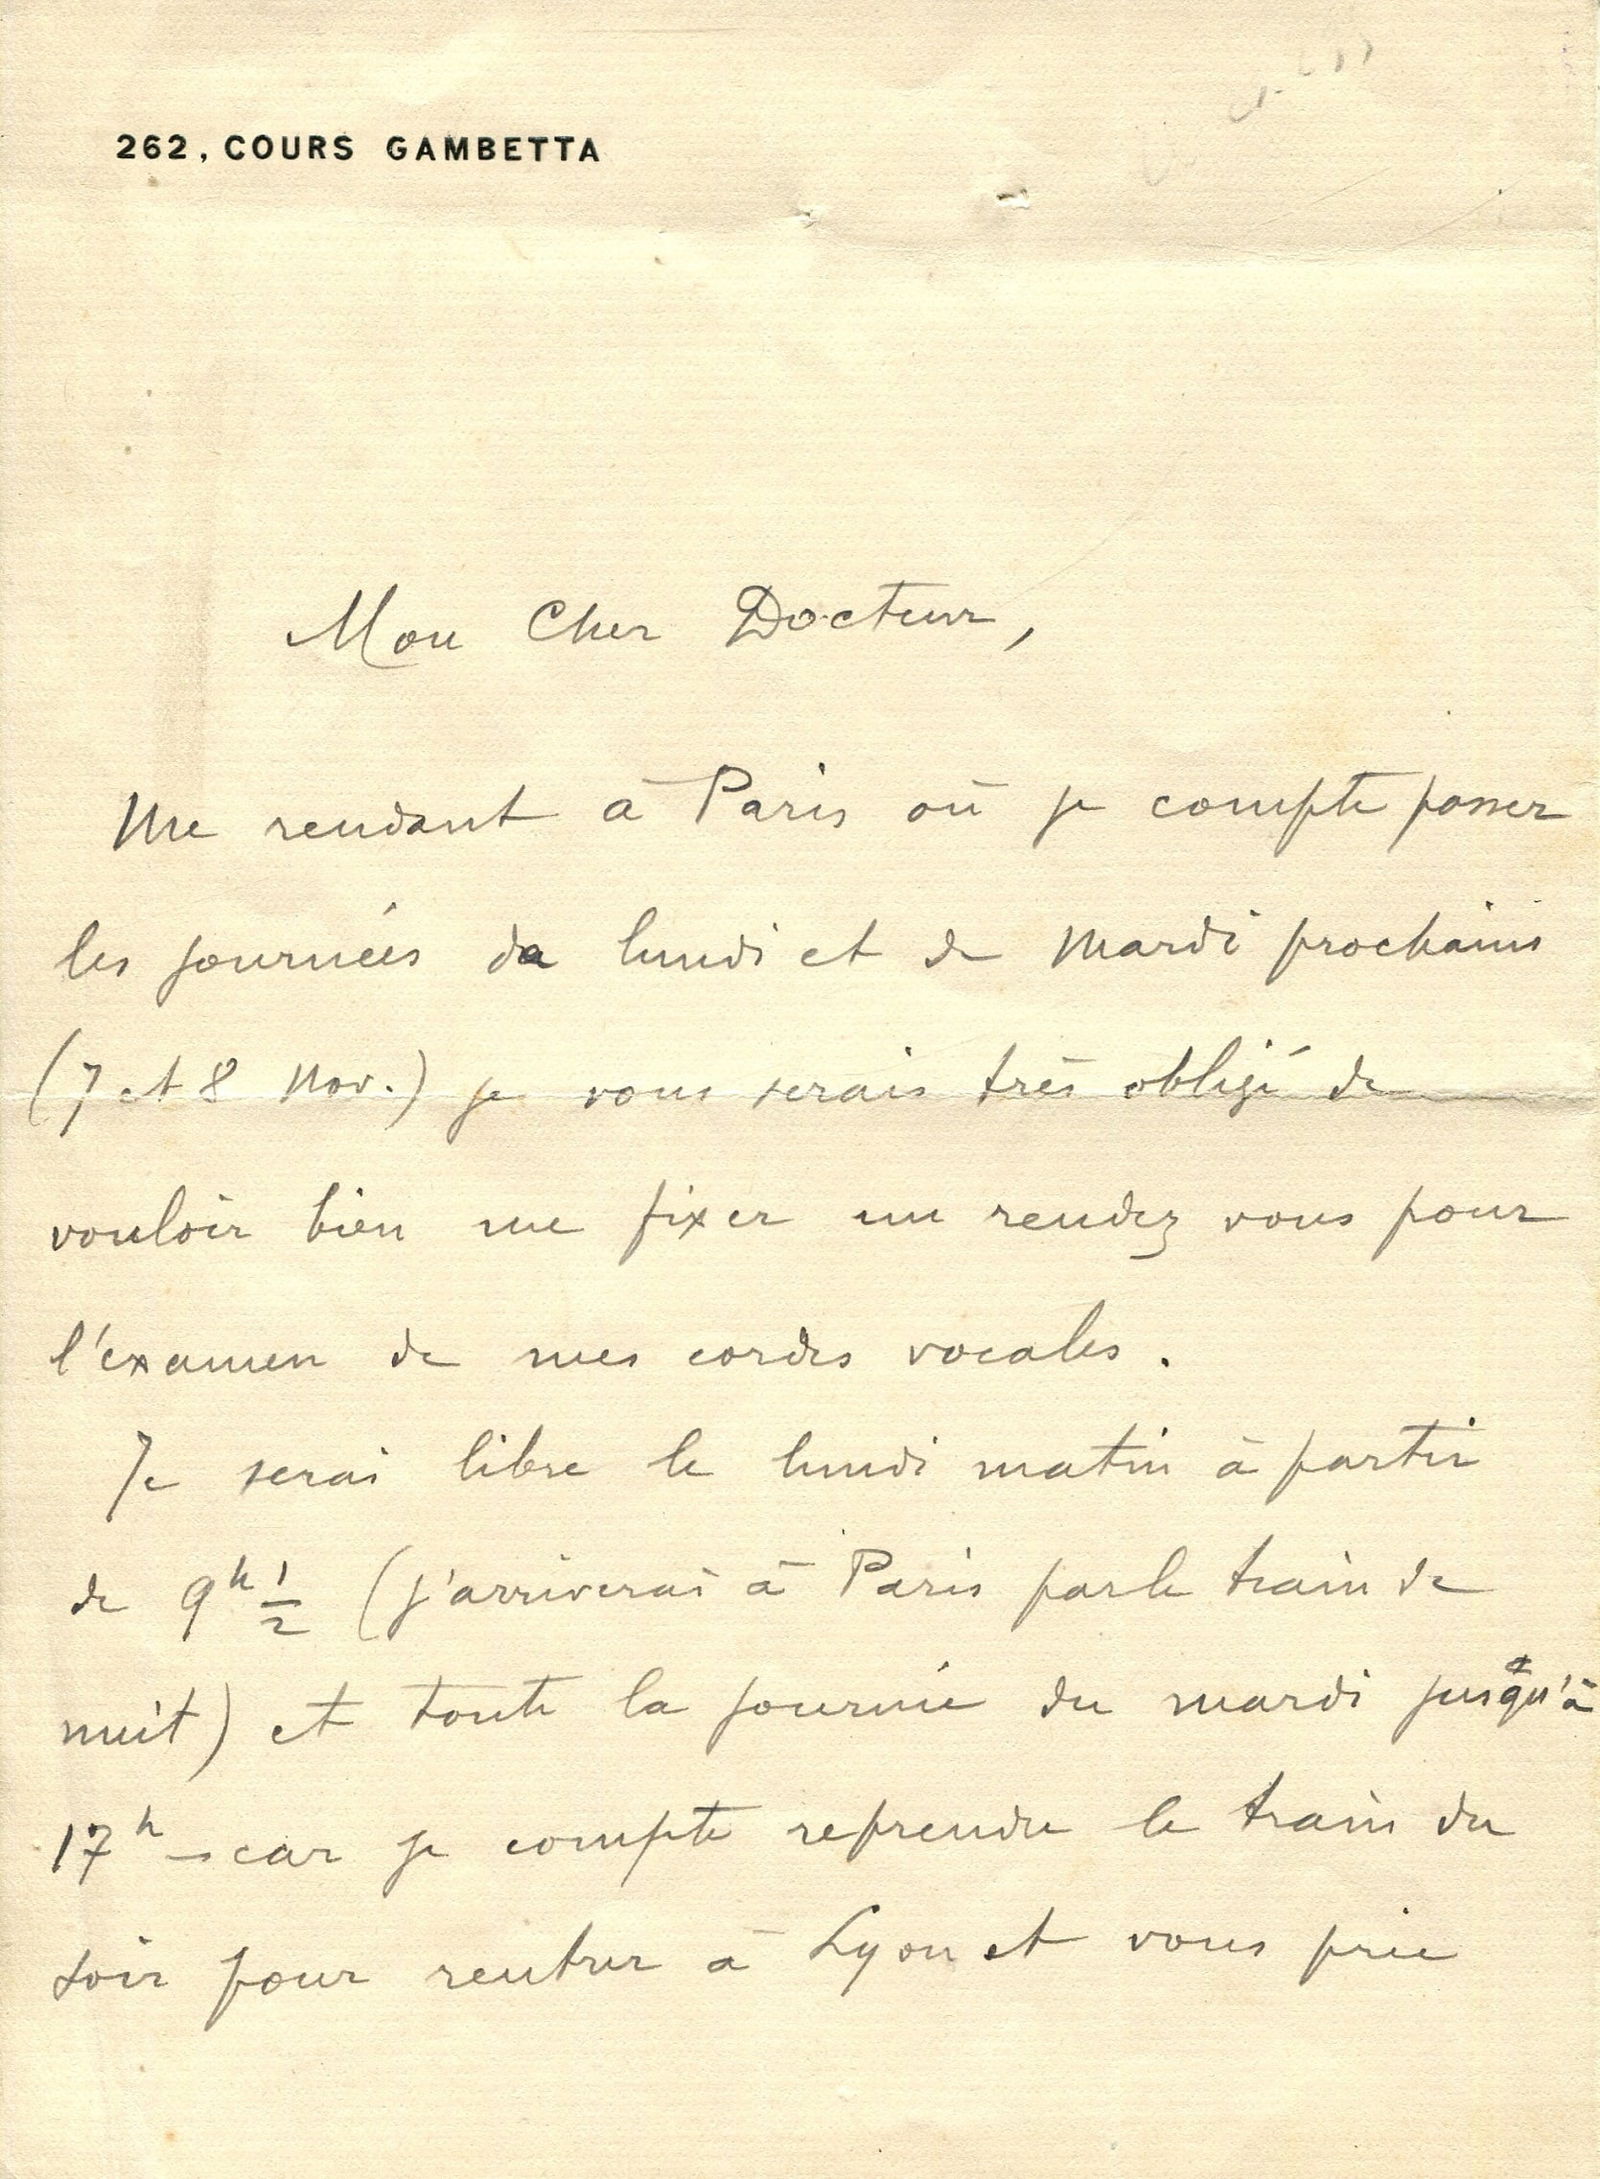 262, COURS GAMBETTA
Mon Cher Docteur,
Me rendant à Paris où je compte passer
les journées de lundi et de mardi prochains
(7 et 8 Nov.) je vous serais très obligé de
vouloir bien me fixer un rendez vous pour
l'examen de mes cordes vocales.
Je serai libre le lundi matin à partir
de 9h 1/2 (j'arriverai à Paris par le train de
nuit) et toute la journée du mardi jusqu'à
17h — car je compte reprendre le train du
soir pour rentrer à Lyon et vous prie